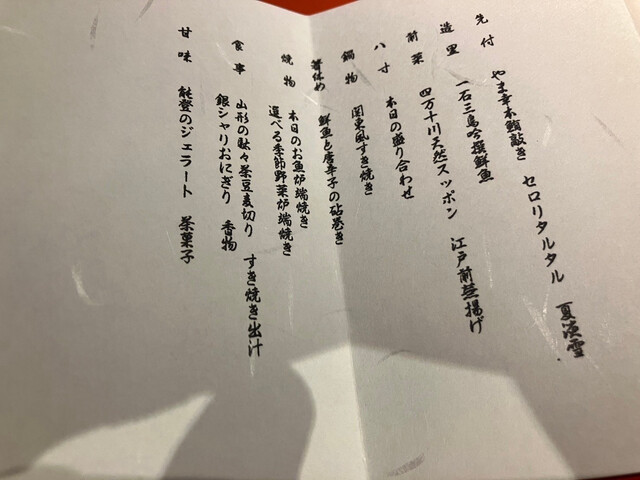 先付　やま幸本鮪敲き　セロリタルタル　夏淡雪
造里　一石三鳥吟撰鮮魚
前菜　四万十川天然スッポン　江戸前蓮揚げ
八寸　本日の盛り合わせ
鍋物　関東風すき焼き
箸休め　鮮魚と唐辛子の砧巻き
焼物　本日のお魚炉端焼き
選べる季節野菜炉端焼き
食事　山形のだ々茶豆麦切り　すき焼き出汁
銀シャリおにぎり　香物
甘味　能登のジェラート　茶菓子